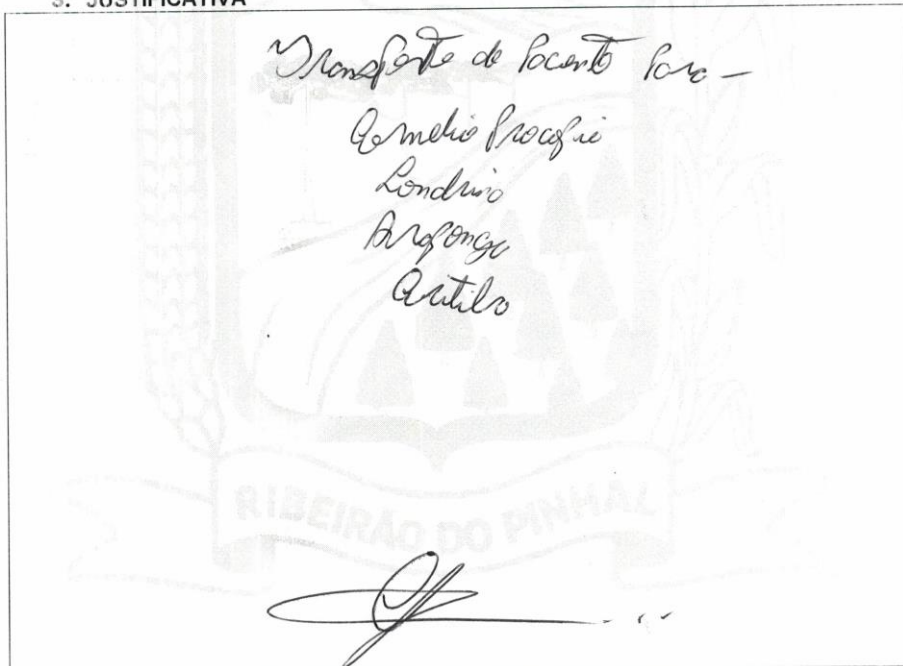 3. JUSTIFICATIVA
Transporte de Paciente Para -
Cornelio Procopio
Londrina
Arapongas
RIBEIRÃO DO PINHAL